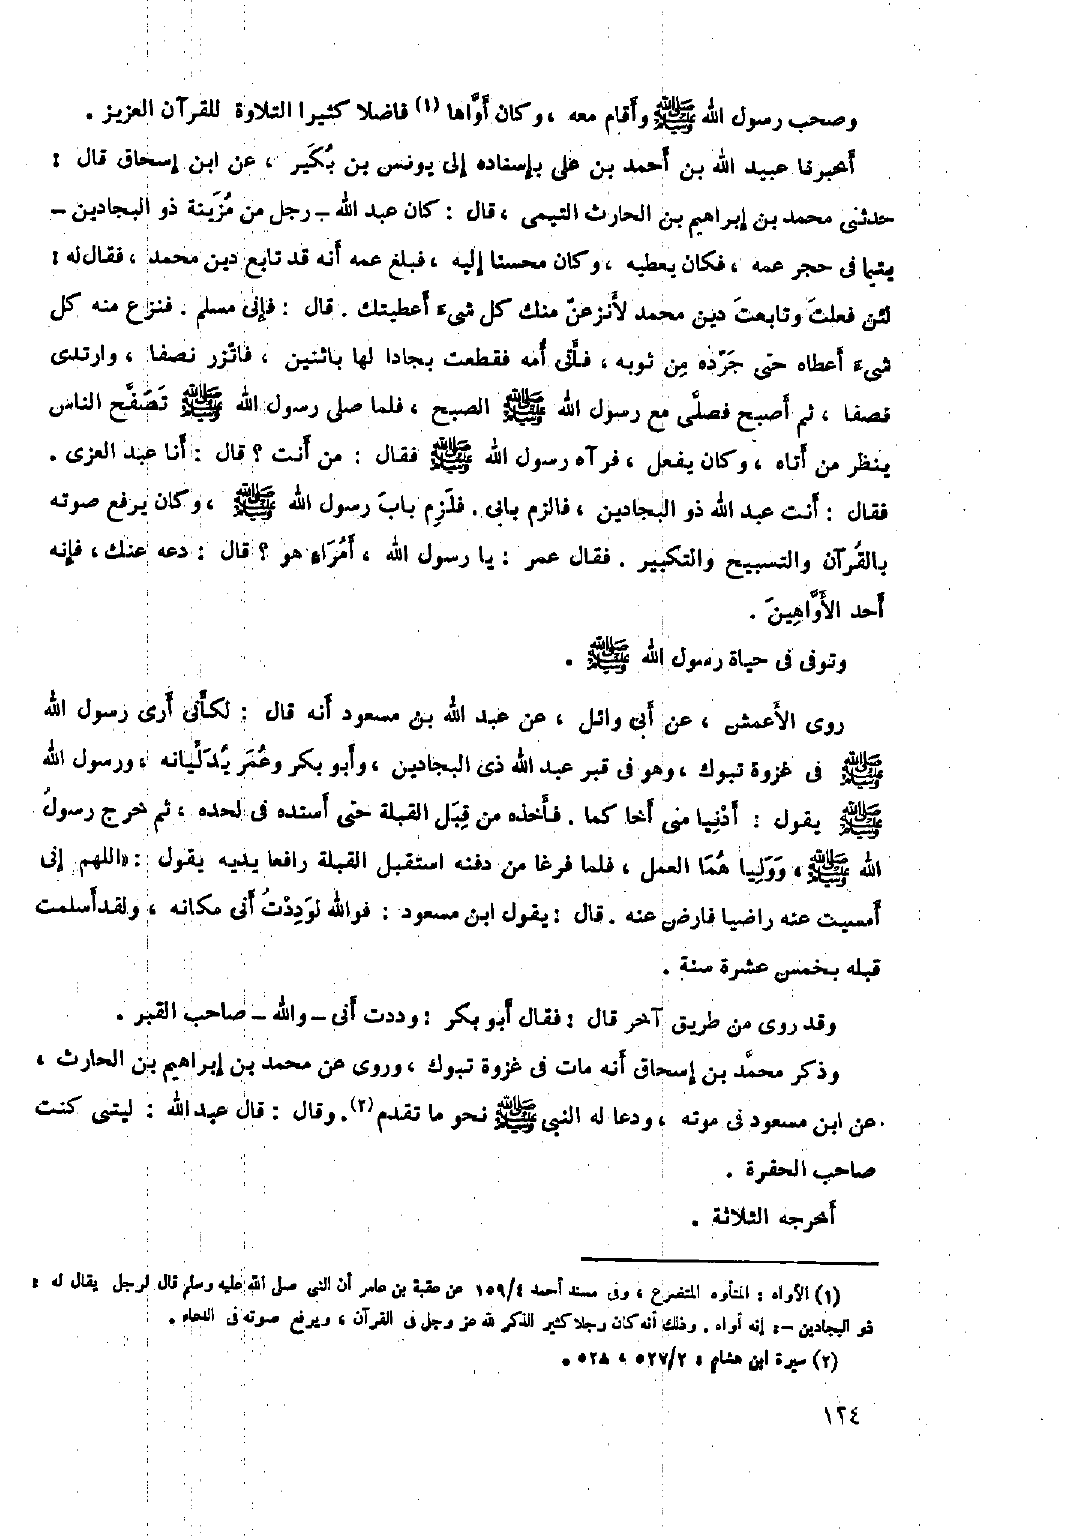 وصحب رسول الله ﷺ وأقام معه ، وكان أَوَّاها (١) فاضلا كثيرا التلاوة للقرآن العزيز .
أخبرنا عبيد الله بن أحمد بن على بإسناده إلى يونس بن بُكَير ، عن ابن إسحاق قال :
حدثنى محمد بن إبراهيم بن الحارث التيمى ، قال : كان عبد الله – رجل من مُزَينة ذو البجادين –
يتيا فى حجر عمه ، فكان يعطيه ، وكان محسنا إليه ، فبلغ عمه أنه قد تابع دين محمد ، فقال له :
لئن فعلتَ وتابعتَ دين محمد لأَنزعنّ منك كل شىء أعطيتك . قال : فإنى مسلم . فنزع منه كل
شىء أعطاه حتى جَرّده مِن ثوبه ، فأتى أُمه فقطعت بجادا لها باثنين ، فاتزر نصفا ، وارتدى
نصفا ، ثم أصبح فصلَّى مع رسول الله ﷺ الصبح ، فلما صلى رسول الله ﷺ تَصَفَّح الناس
ينظر من أتاه ، وكان يفعل ، فرآه رسول الله ﷺ فقال : من أنت ؟ قال : أنا عبد العزى .
فقال : أنت عبد الله ذو البجادين ، فالزم بابى . فلَزِم بابَ رسول الله ﷺ ، وكان يرفع صوته
بالقُرآن والتسبيح والتكبير . فقال عمر : يا رسول الله ، أمُرَاءٍ هو ؟ قال : دعه عنك ، فإنه
أحد الأَوَّاهِينَ .
وتوفى فى حياة رسول الله ﷺ .
روى الأَعمش ، عن أبى وائل ، عن عبد الله بن مسعود أنه قال : لكأَنى أرى رسول الله
ﷺ فى غزوة تبوك ، وهو فى قبر عبد الله ذى البجادين ، وأبو بكر وعُمَر يُدَلِّيانه ، ورسول الله
ﷺ يقول : أَدْنِيا منى أخا كما . فأخذه من قِبَل القبلة حتى أسنده فى لحده ، ثم خرج رسولُ
الله ﷺ ، وَوَلِيا هُمَا العمل ، فلما فرغا من دفنه استقبل القبلة رافعا يديه يقول : «اللهم إنى
أمسيت عنه راضيا فارض عنه . قال : يقول ابن مسعود : فوالله لوَدِدْتُ أنى مكانه ، ولقد أسلمت
قبله بخمس عشرة سنة .
وقد روى من طريق آخر قال : فقال أبو بكر : وددت أنى – والله – صاحب القبر .
وذكر محمَّد بن إسحاق أنه مات فى غزوة تبوك ، وروى عن محمد بن إبراهيم بن الحارث ،
عن ابن مسعود فى موته ، ودعا له النبى ﷺ نحو ما تقدم (٢) . وقال : قال عبد الله : ليتنى كنت
صاحب الحفرة .
أخرجه الثلاثة .
(١) الأواه : المتأوه المتضرع ، وفى مسند أحمد ١٥٩/٤ عن عقبة بن عامر أن النبى صلى الله عليه وسلم قال لرجل يقال له :
ذو البجادين – : إنه أواه . وذلك أنه كان رجلا كثير الذكر لله عز وجل فى القرآن ، ويرفع صوته فى الدعاء .
(٢) سيرة ابن هشام : ٥٢٧/٢ ، ٥٢٨ .
١٢٤